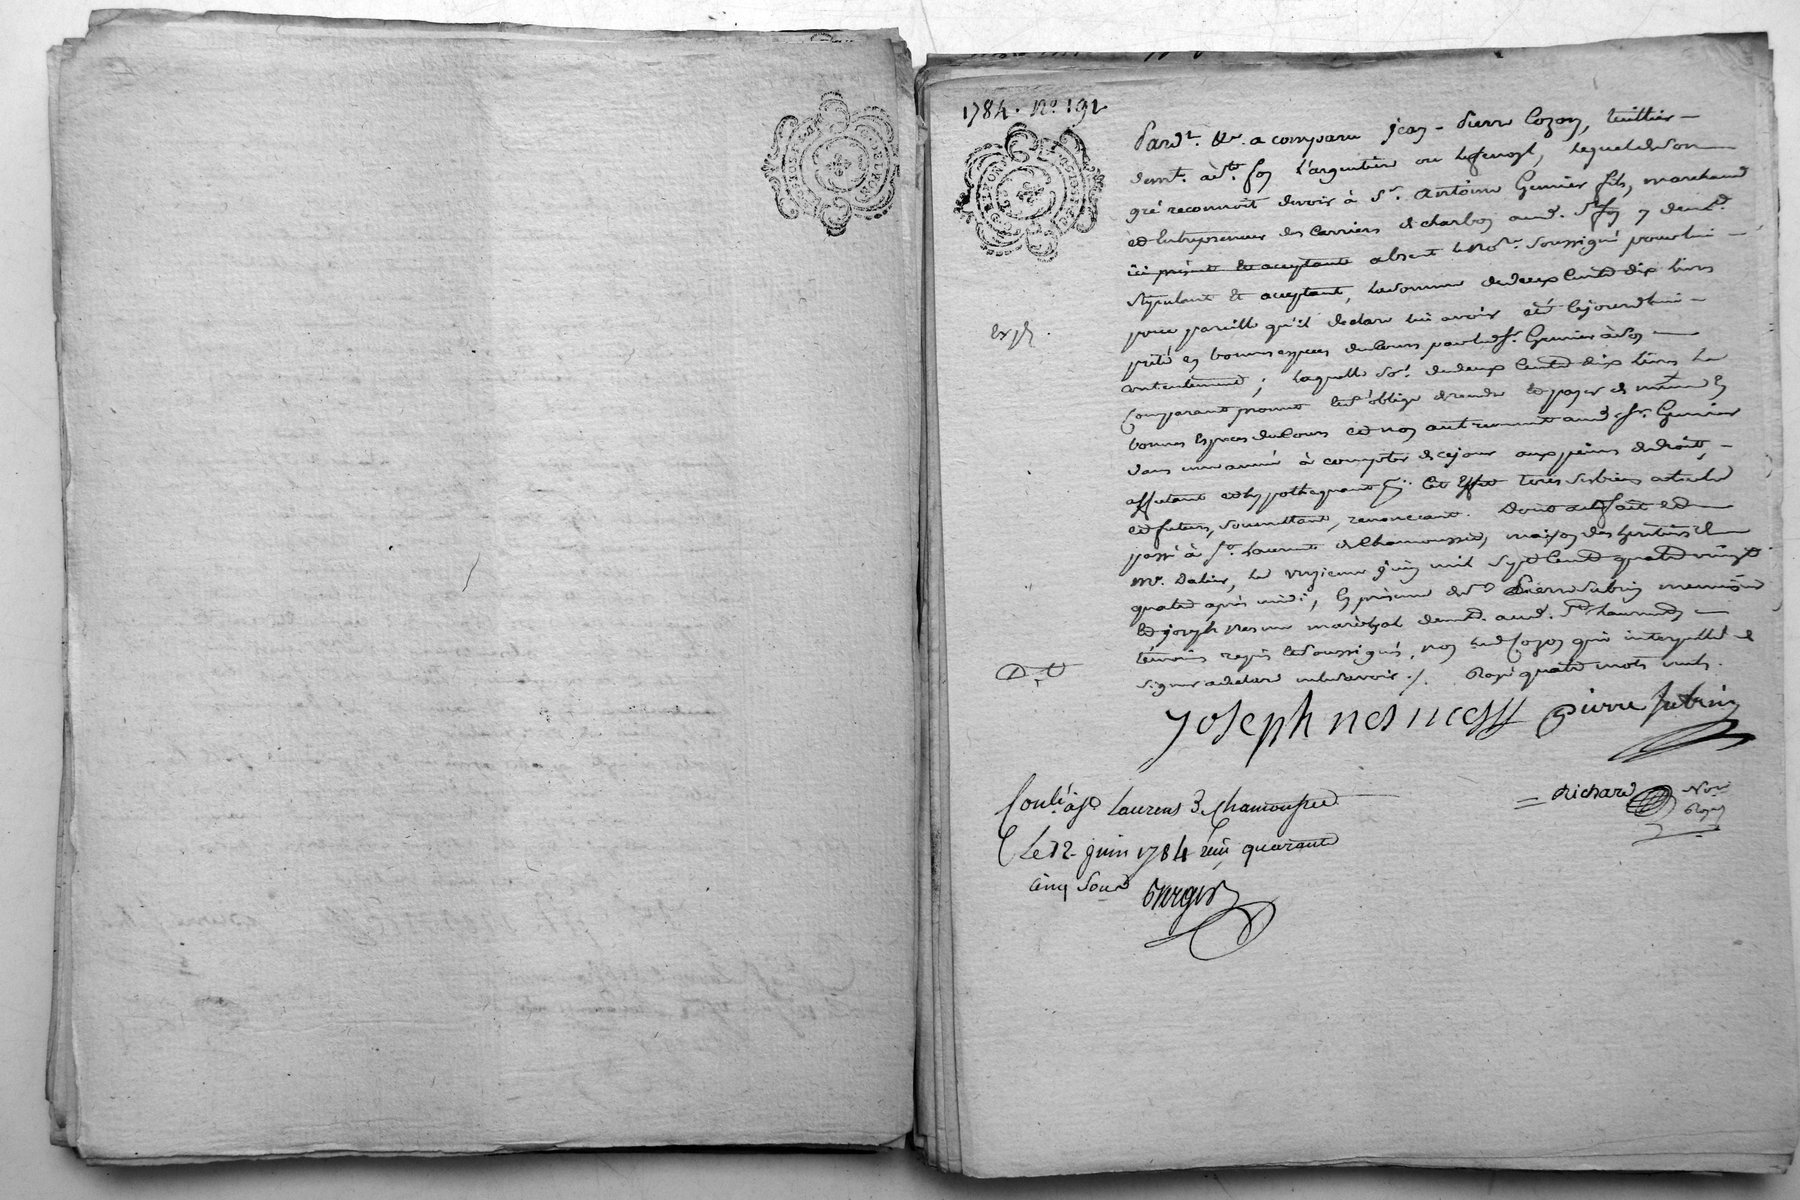 1784. No. 191
Pard.t &c. a comparu jean-Pierre Cozon, tuillier
demt. à St. foy l'argentiere ou lefenoyl, lequel de son
gré reconnoit devoir à Sr. antoine Grenier fils, marchand
et Entrepreneur des Carrieres de charbon aud. St. foy y demt.
ici présent et acceptant absent le nore. soussigné pour lui
stipulant et acceptant, la somme de deux Cents dix livres
pour pareille qu'il declare lui avoir été cejourdhui
Exp.
prêté en bonnes especes du Cours par led. Sr. Grenier à son
contentement; laquelle so.e de deux Cents dix livres le
Comparant promet et s'oblige de rendre et payer en
bonnes Especes du Cours et non autrement aud. Sr. Grenier
dans une année à compter de ce jour aux peines de droit,
affectant et hypothequant Cet Effet tous ses biens actuels
et futurs, soumettant, renonceant. Dont acte fait et
passé à St. Laurent de Chamousset, maison des heritiers de
mr. Dalier, le onzieme juin mil Sept Cent quatre vingt
quatre après midi, En présence de Sr. Pierre Subrin menuisier
Et joseph Nesme maréchal demt. aud. St. Laurent
témoins requis et soussignés, non led. Cozon qui interpellé de
signer a declaré ne le savoir ./. Rayé quatre mots nuls.
Joseph nesme pierre subrin
richard Nore
Royal
Conlé. à St. Laurens de Chamousset
Le 12 juin 1784 reçu quarante
cinq sous